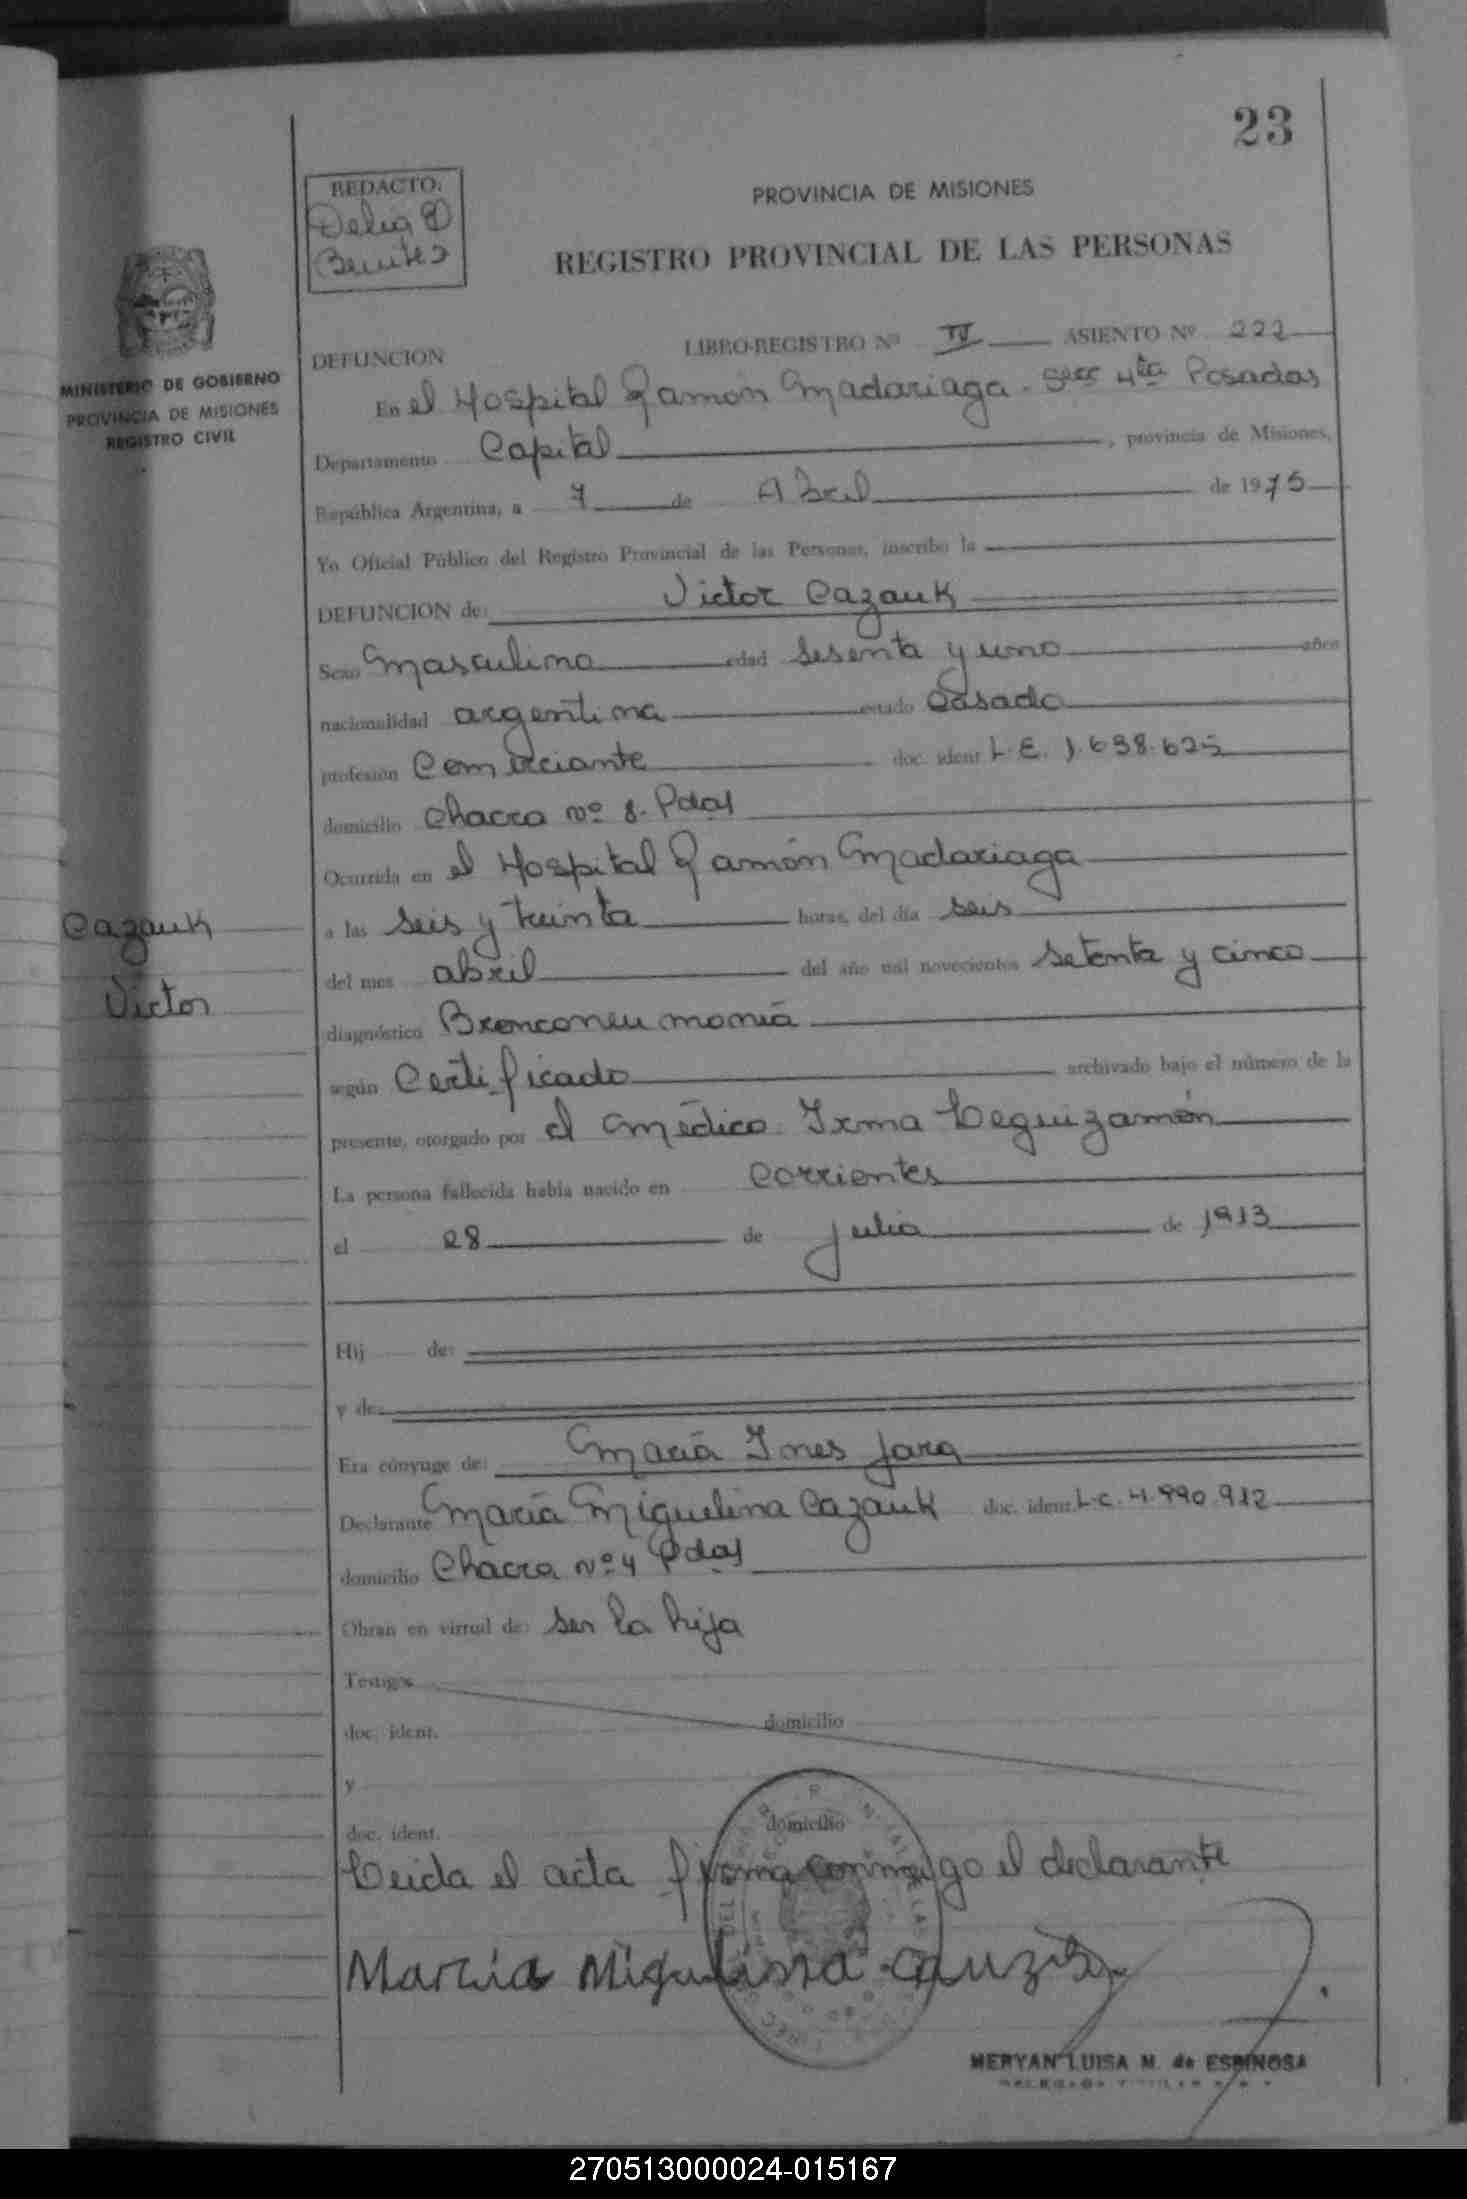 23
REDACTO:
Delia
Benitez
PROVINCIA DE MISIONES
REGISTRO PROVINCIAL DE LAS PERSONAS
MINISTERIO DE GOBIERNO
PROVINCIA DE MISIONES
REGISTRO CIVIL
LIBRO-REGISTRO Nº IV ASIENTO Nº 222
DEFUNCION
En el Hospital Ramón Madariaga - Secc 4ta Posadas
Departamento Capital, provincia de Misiones,
República Argentina, a 7 de Abril de 1975
Yo Oficial Público del Registro Provincial de las Personas, inscribo la
DEFUNCION de: Victor Cazauk
Sexo Masculino edad sesenta y uno años
nacionalidad argentina estado Casado
profesión Comerciante doc. ident L.E. 1.638.625
domicilio Chacra nº 8. Pdas
Ocurrida en el Hospital Ramón Madariaga
a las seis y treinta horas, del día seis
del mes abril del año mil novecientos setenta y cinco
Cazauk
Victor
diagnóstico Bronconeumonía
según Certificado archivado bajo el número de la
presente, otorgado por el médico Irma Leguizamón
La persona fallecida había nacido en Corrientes
el 28 de julio de 1913
Hij de:
y de:
Era cónyuge de: María Ines Jara
Declarante María Miguelina Cazauk doc. ident. L.C. 4.990.912
domicilio Chacra nº 4 Pdas
Obran en virtud de: ser la hija
Testigos
doc. ident. domicilio
y
doc. ident. domicilio
Leida el acta firma conmigo el declarante
MERYAN LUISA M. de ESPINOSA
270513000024-015167